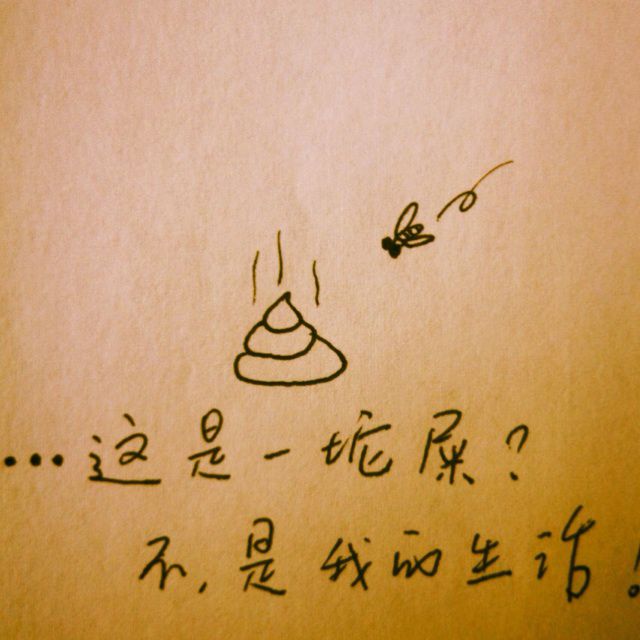 ···这是一坨屎?
不,是我的生活!